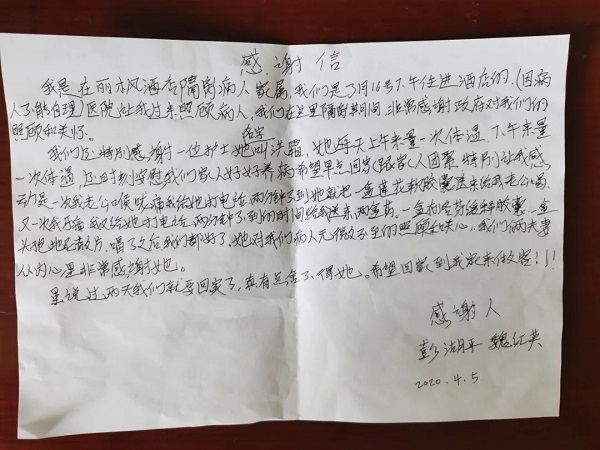 感谢信
我是在丽枫酒店隔离病人家属,我们是3月16号下午住进酒店的,(因病
人不能自理)医院让我过来照顾病人,我们在这里隔离其间,非常感谢政府对我们的
照顾和关怀。
我们还特别感谢一位护士她叫洪霜,她每天上午来量一次体温,下午来量
一次体温,还时刻安慰我们家人好好养病希望早点回家(跟家人团聚,特别让我感
动是一次我老公喉咙痛我给她打电话,两分钟不到她就把一盒莲花和胶囊送来给我老公喝,
又一次我牙痛我又给她打电话,两分钟不到的时间给我送来两盒药。一盒布洛芬缓释胶囊,一盒
头孢地尼散片,喝了之后我们都好了,她对我们病人无微不至的照顾和关心,我们俩夫妻
从内心里非常感谢她。
虽说过两天我们就要回家了,真有点舍不得她。希望回家(到我家来做客!!!
感谢人
彭湖平 魏红英
2020.4.5